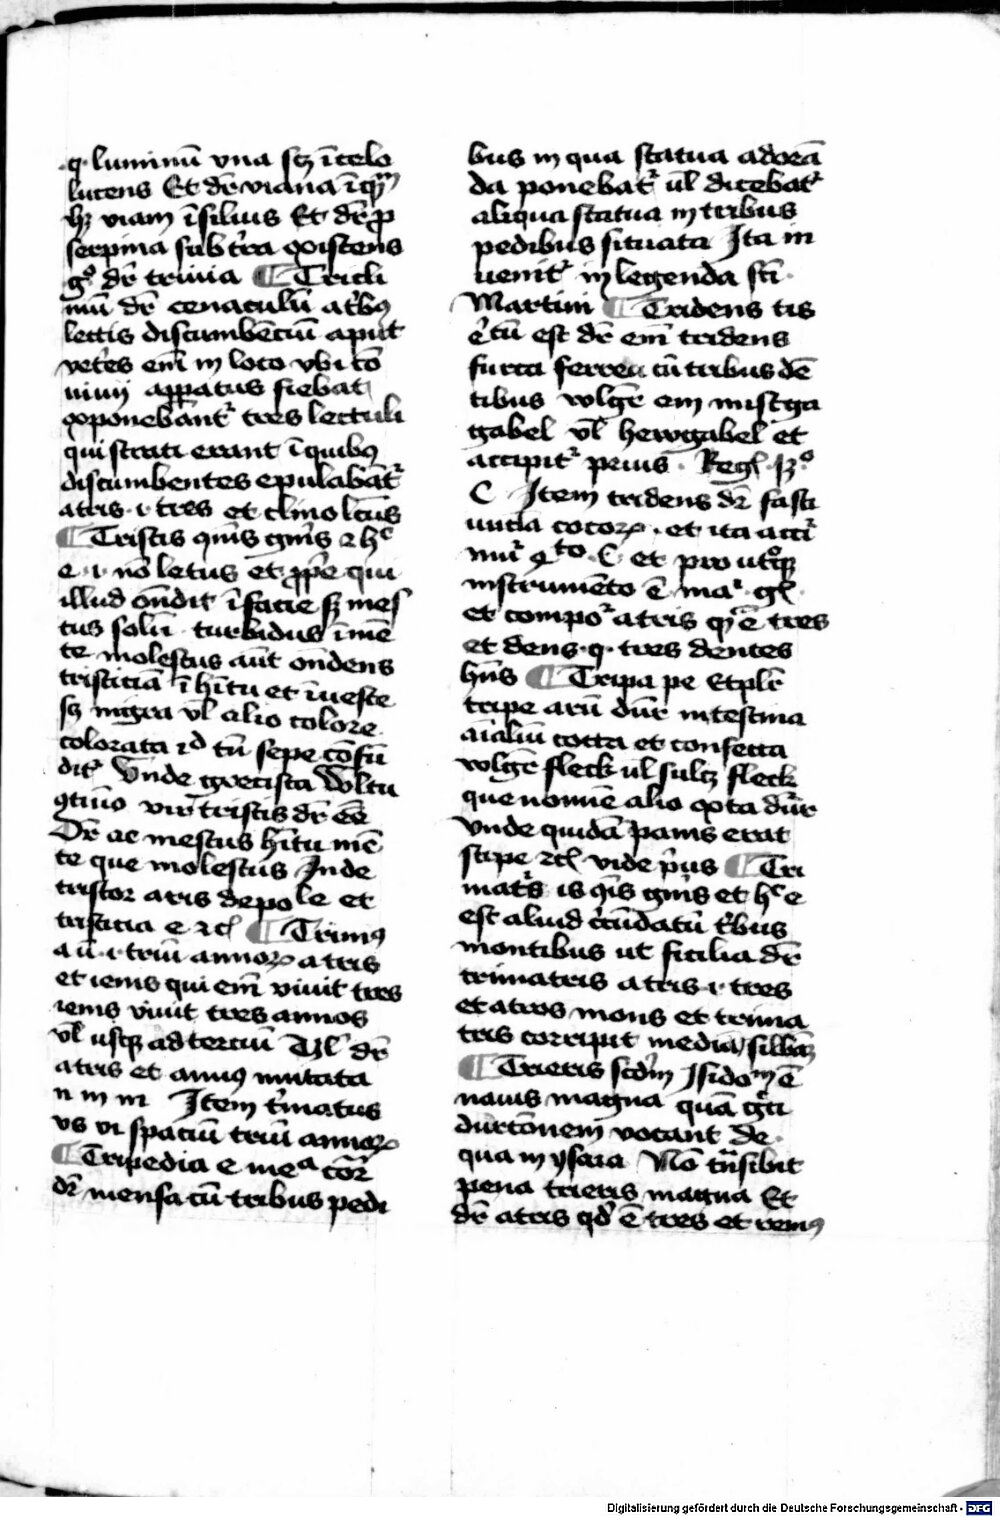 .q. luminū vna scz ī celo
lucens Et dr̄ viana ī qm̄
hz viam ī siluis Et dr̄ ꝓ
serpina sub t̄ra existens
gͦ dr̄ triuia ¶ Tricli
niū dr̄ cenaculū a tͥbꝰ
lectis discumbēciū aput
vet̄es em̄ in loco vbi cō
uiuij apꝑatus fiebat
exponebāntᷣ tres lectuli
qui strati erant ī quibꝰ
discumbentes epulabātᷣ
a tris .i. tres et clino lcūs
¶ Tristis qm̄s gn̄is ⁊ hͨ
e .i. nō letus et ꝓpͥe qui
illud on̄dit ī facie sz mes
tus solū turbidus ī mē
te molestus aūt on̄dens
tristiciā ī hītu et ī veste
sz nigra vl̄ alio colore
colorata ⁊ᵈ tn̄ sepe cōfū
ditᷣ Vnde grecista Vultu
ꝯtinuo vir tristis dr̄ eē
Dr̄ ac mestus hītu mē
te que molestus Inde
tristor aris depole et
tristicia e ⁊cͭ ¶ Trimꝰ
a ū .i. triū annoꝝ a tris
et iems qui em̄ viuit tres
iems viuit tres annos
vl̄ usqꝫ ad terciū Vl̄ dr̄
a tris et annꝰ mutata
n in m Item t̄imatus
vs vi spaciū triū annoꝝ
¶ Tripedia e meᵃ cōr
dr̄ mensa cū tribus pedi
bus in qua statua adorā
da ponebatᷣ ul̄ dicebatᷣ
aliqua statua in tribus
pedibus situata Ita in
uenitᷣ in legenda sc̄i
Martini ¶ Tridens tis
e᷑ tū est dr̄ em̄ tridens
furca ferrea cū tribus dē
tibus wlgr̄ ein mistga
gabel vl̄ hewgabel et
accipitᷣ prius . Regͭ .3.ͦ
C Item tridens dr̄ fasci
uncla cocoꝝ . et ita acci
niuᷣ 4ᵗᵒ . C et pro utͦqꝫ
instrumēto ē maᷣ . gl̄
et compoᷣ a tris qͥ ē tres
et dens .q. tres dentes
hn̄s ¶ Tripa pe et plr̄
tripe arū dn̄r intestina
aīaliū cocta et confecta
wlgr̄ fleck ul sultz fleck
que nomīe alio exta dn̄r
Vnde quidā panis erat
stipe ⁊cͭ vide pͥus ¶ Tri
matͥs is qͥs gn̄is et hͨ e
est aliud cͥcūdatū tͥbus
montibus ut sicilia dr̄
trimatris a tris .i. tres
et atros mons et trima
tris corripit mediā silbā
¶ Trieris scd̄m Isidoᵐ ē
nauis magna quā gͤci
durconem vocant de
qua in ysaia Nō trāsibit
pena trieris magna Et
dr̄ a tris qd̄ ē tres et remꝰ
Digitalisierung gefördert durch die Deutsche Forschungsgemeinschaft - DFG